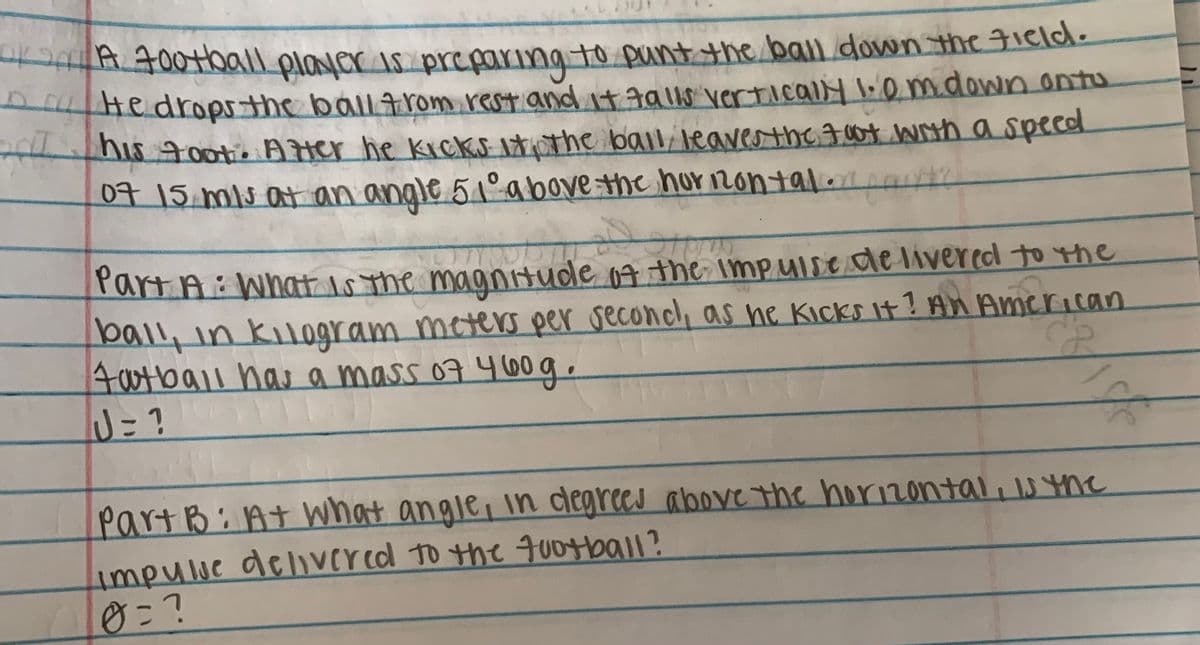 A football player is preparing to punt the ball down the field.
He drops the ball from rest and it falls vertically 1.0 m down onto
his foot. After he kicks it, the ball leaves the foot with a speed
of 15 m/s at an angle 51° above the horizontal.
Part A: What is the magnitude of the impulse delivered to the
ball, in kilogram meters per second, as he kicks it? An American
football has a mass of 460g.
J = ?
Part B: At what angle, in degrees above the horizontal, is the
impulse delivered to the football?
θ = ?